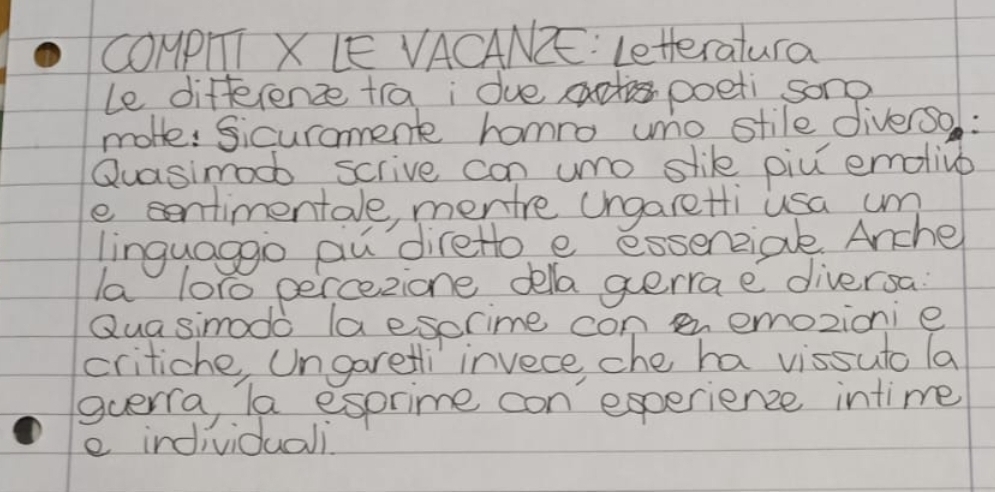 COMPITI X LE VACANZE: Letteratura
Le differenze tra i due poeti sono
molte: Sicuramente hanno uno stile diverso:
Quasimodo scrive con uno stile più emotivo
e sentimentale, mentre Ungaretti usa un
linguaggio più diretto e essenziale. Anche
la loro percezione della guerra è diversa:
Quasimodo la esprime con emozioni e
critiche, Ungaretti invece, che ha vissuto la
guerra, la esprime con esperienze intime
e individuali.